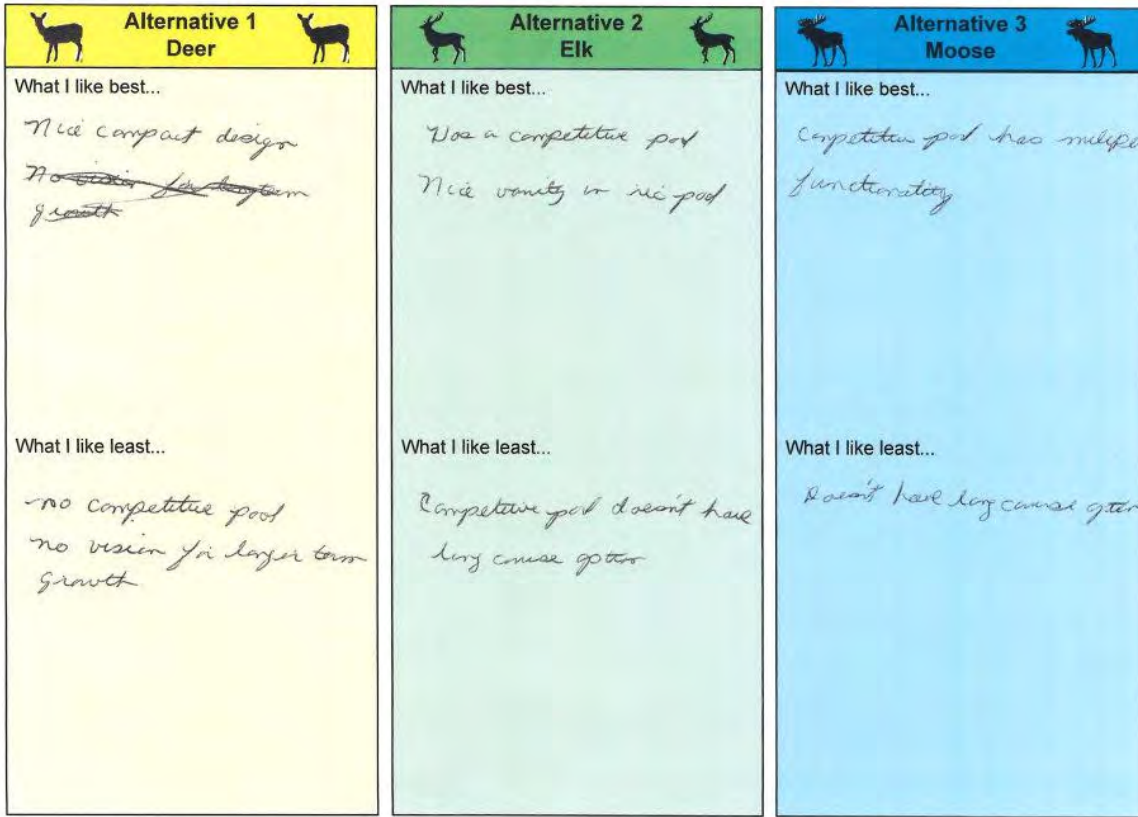 Alternative 1
Deer
What I like best...
Nice compact design
No vision for long term
growth
What I like least...
no competitive pool
no vision for longer term
growth
Alternative 2
Elk
What I like best...
Has a competitive pool
Nice vanity in rec pool
What I like least...
Competitive pool doesn't have
long course option
Alternative 3
Moose
What I like best...
Competitive pool has
functionality
What I like least...
Doesn't have long course